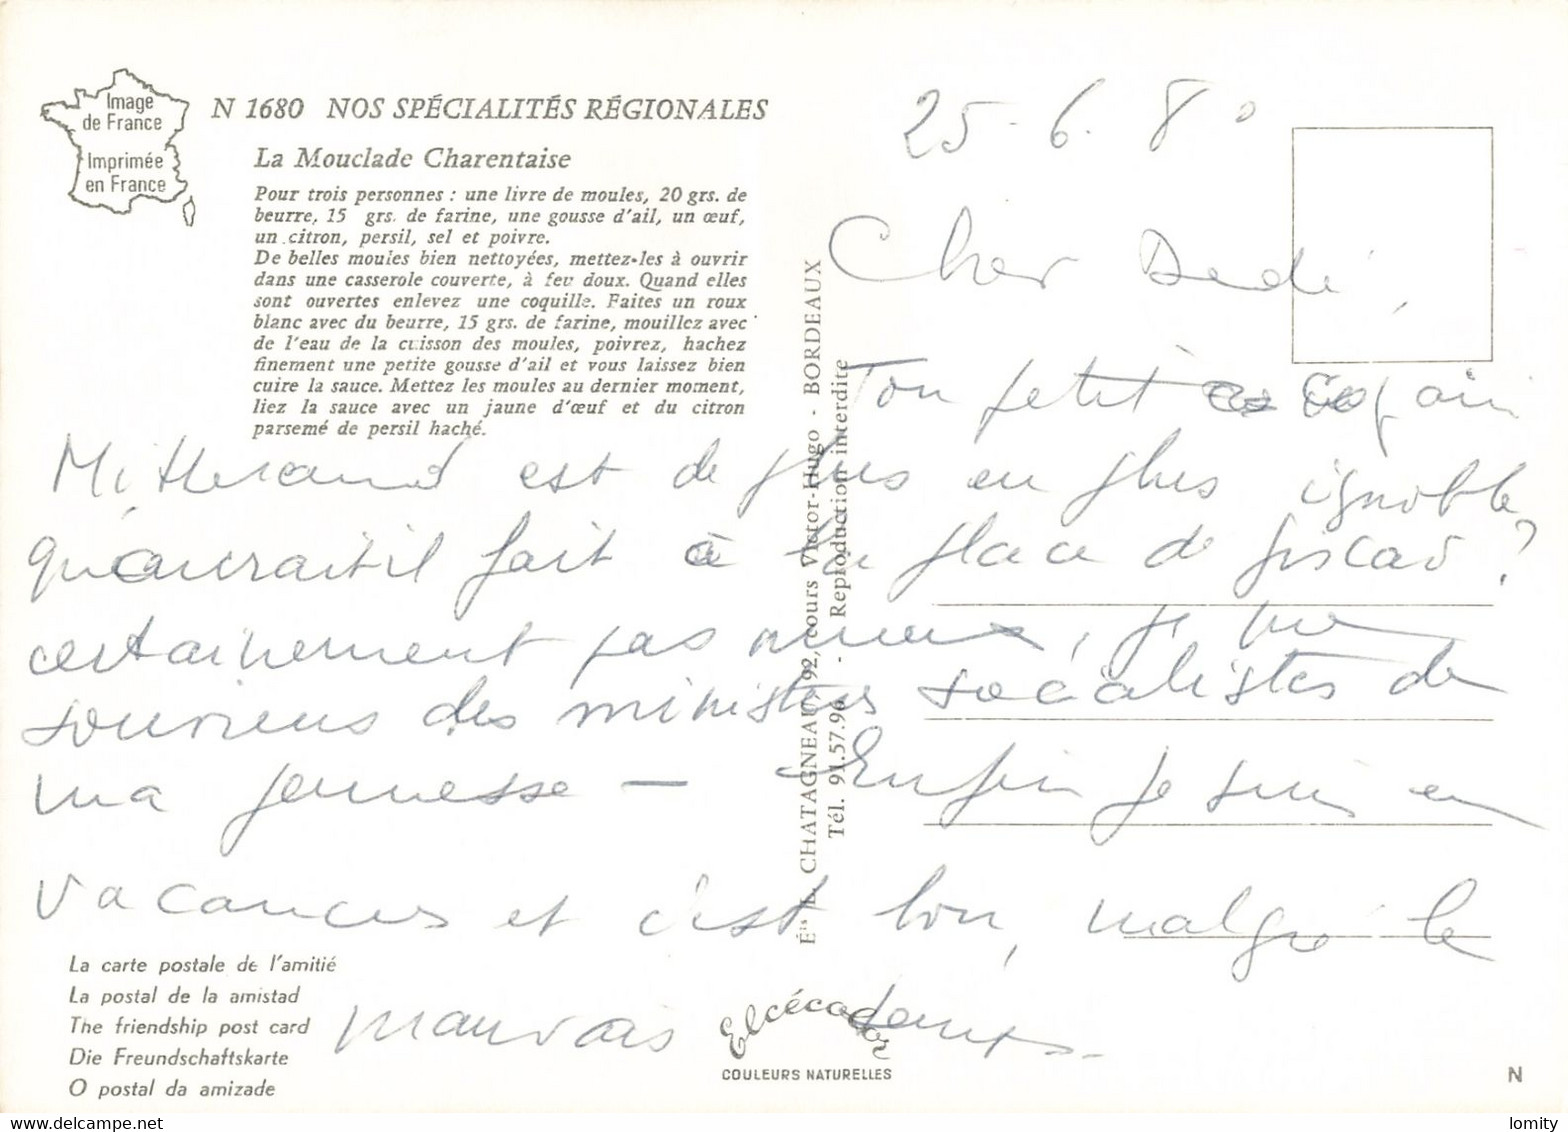 Image
de France
Imprimée
en France
N 1680 NOS SPÉCIALITÉS RÉGIONALES
La Mouclade Charentaise
Pour trois personnes : une livre de moules, 20 grs. de
beurre, 15 grs. de farine, une gousse d'ail, un œuf,
un citron, persil, sel et poivre.
De belles moules bien nettoyées, mettez-les à ouvrir
dans une casserole couverte, à feu doux. Quand elles
sont ouvertes enlevez une coquille. Faites un roux
blanc avec du beurre, 15 grs. de farine, mouillez avec
de l'eau de la cuisson des moules, poivrez, hachez
finement une petite gousse d'ail et vous laissez bien
cuire la sauce. Mettez les moules au dernier moment,
liez la sauce avec un jaune d'œuf et du citron
parsemé de persil haché.
25-6.80
Cher Dedé,
Ton petit copain
Mitterand est de plus en plus ignoble
qu'aurait il fait à la place de Giscard?
certainement pas mieux, je me
souviens des ministres socialistes de
ma jeunesse — Enfin je suis en
vacances et c'est bon, malgré le
mauvais temps.
Éts L. CHATAGNEAU, 92, cours Victor-Hugo - BORDEAUX
Tél. 91.57.96 - Reproduction interdite
La carte postale de l'amitié
La postal de la amistad
The friendship post card
Die Freundschaftskarte
O postal da amizade
Elcécolor
COULEURS NATURELLES
N
lomity